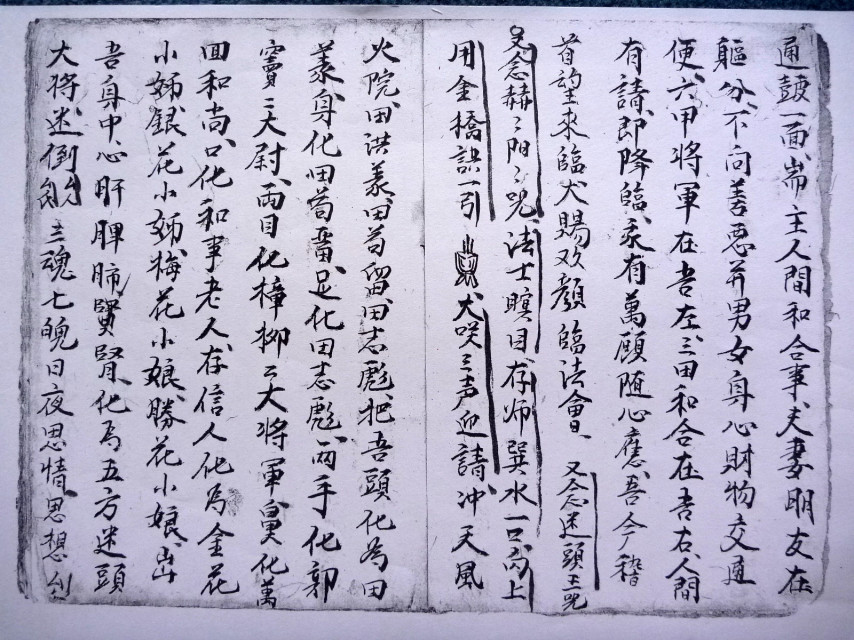 通鼓一面、耑主人間和合事、夫妻朋友在
軀分、不向善惡并男女身心財物交通
便、六甲將軍在吾左、三田和合在吾右、人間
有請、即降臨、永有萬願随心應、吾今稽
首望來臨、大賜欢顏臨法會、又念迷頭王咒
又念赫〻陽〻咒、法士瞑目、存师巽水一口、向上
用金橋訣一引 大咲三声迎請、冲天風
火院、田洪義、田苟留、田志彪、把吾頭化为田
義、身化田苟留、足化田志彪、两手化郭
竇二大尉、両目化樟柳二大將軍、鼻化萬
回和尚、口化和事老人、存信人化爲金花
小姊、銀花小姊、梅花小娘、勝花小娘、出
吾身中、心肝脾肺腎、化爲五方迷頭
大將、迷倒 三魂七魄、日夜思情、思想